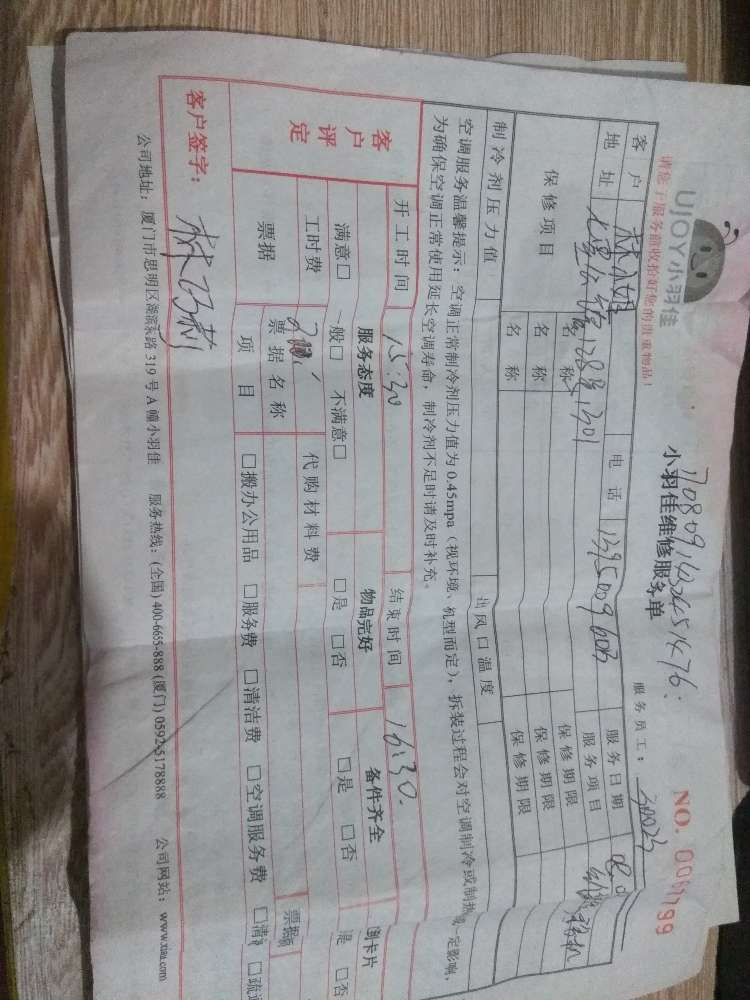 UJOY小羽佳
请您于服务前收拾好您的贵重物品！
小羽佳维修服务单
服务员工：
NO.
客户 林小姐 电话 服务日期
地址 128号1301 服务项目
保修项目 名称 保修期限
名称 保修期限
名称 保修期限
制冷剂压力值 出风口温度
空调服务温馨提示：空调正常制冷剂压力值为0.45mpa（视环境、机型而定），拆装过程会对空调制冷或制热 一定影响，
为确保空调正常使用延长空调寿命，制冷剂不足时请及时补充。
开工时间 15:30 结束时间 16:30.
客户评定 服务态度 物品完好 备件齐全 卡片
满意□ 一般□ 不满意□ □是 □否 □是 □否 是 □否
工时费 代购材料费
票据 票据名称 票据
项目 □搬办公用品 □服务费 □清洁费 □空调服务费 □清 □疏
客户签字：
公司地址：厦门市思明区湖滨东路319号A幢小羽佳 服务热线：(全国) 400-6655-888 (厦门) 0592-5178888 公司网站：www.xiau.com